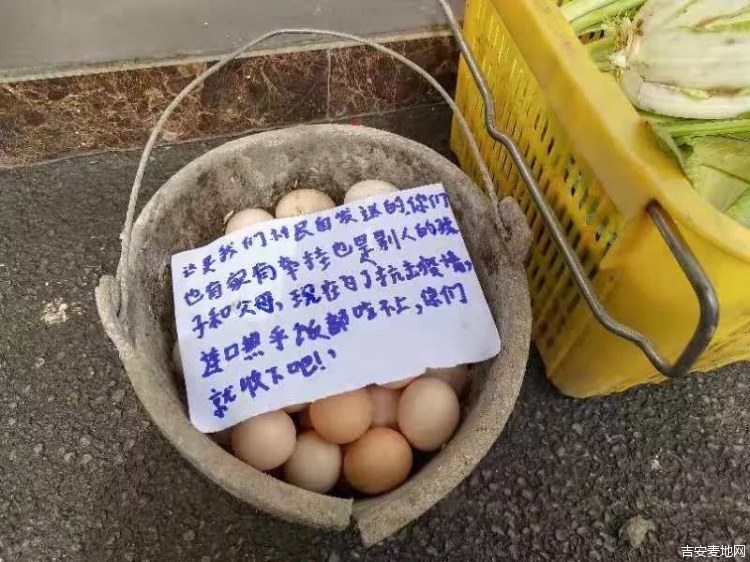 这是我们村民自发送的,你们
也有家有牵挂也是别人的孩
子和父母,现在为了抗击疫情,
连口热乎饭都吃不上,你们
就收下吧!,
吉安麦地网